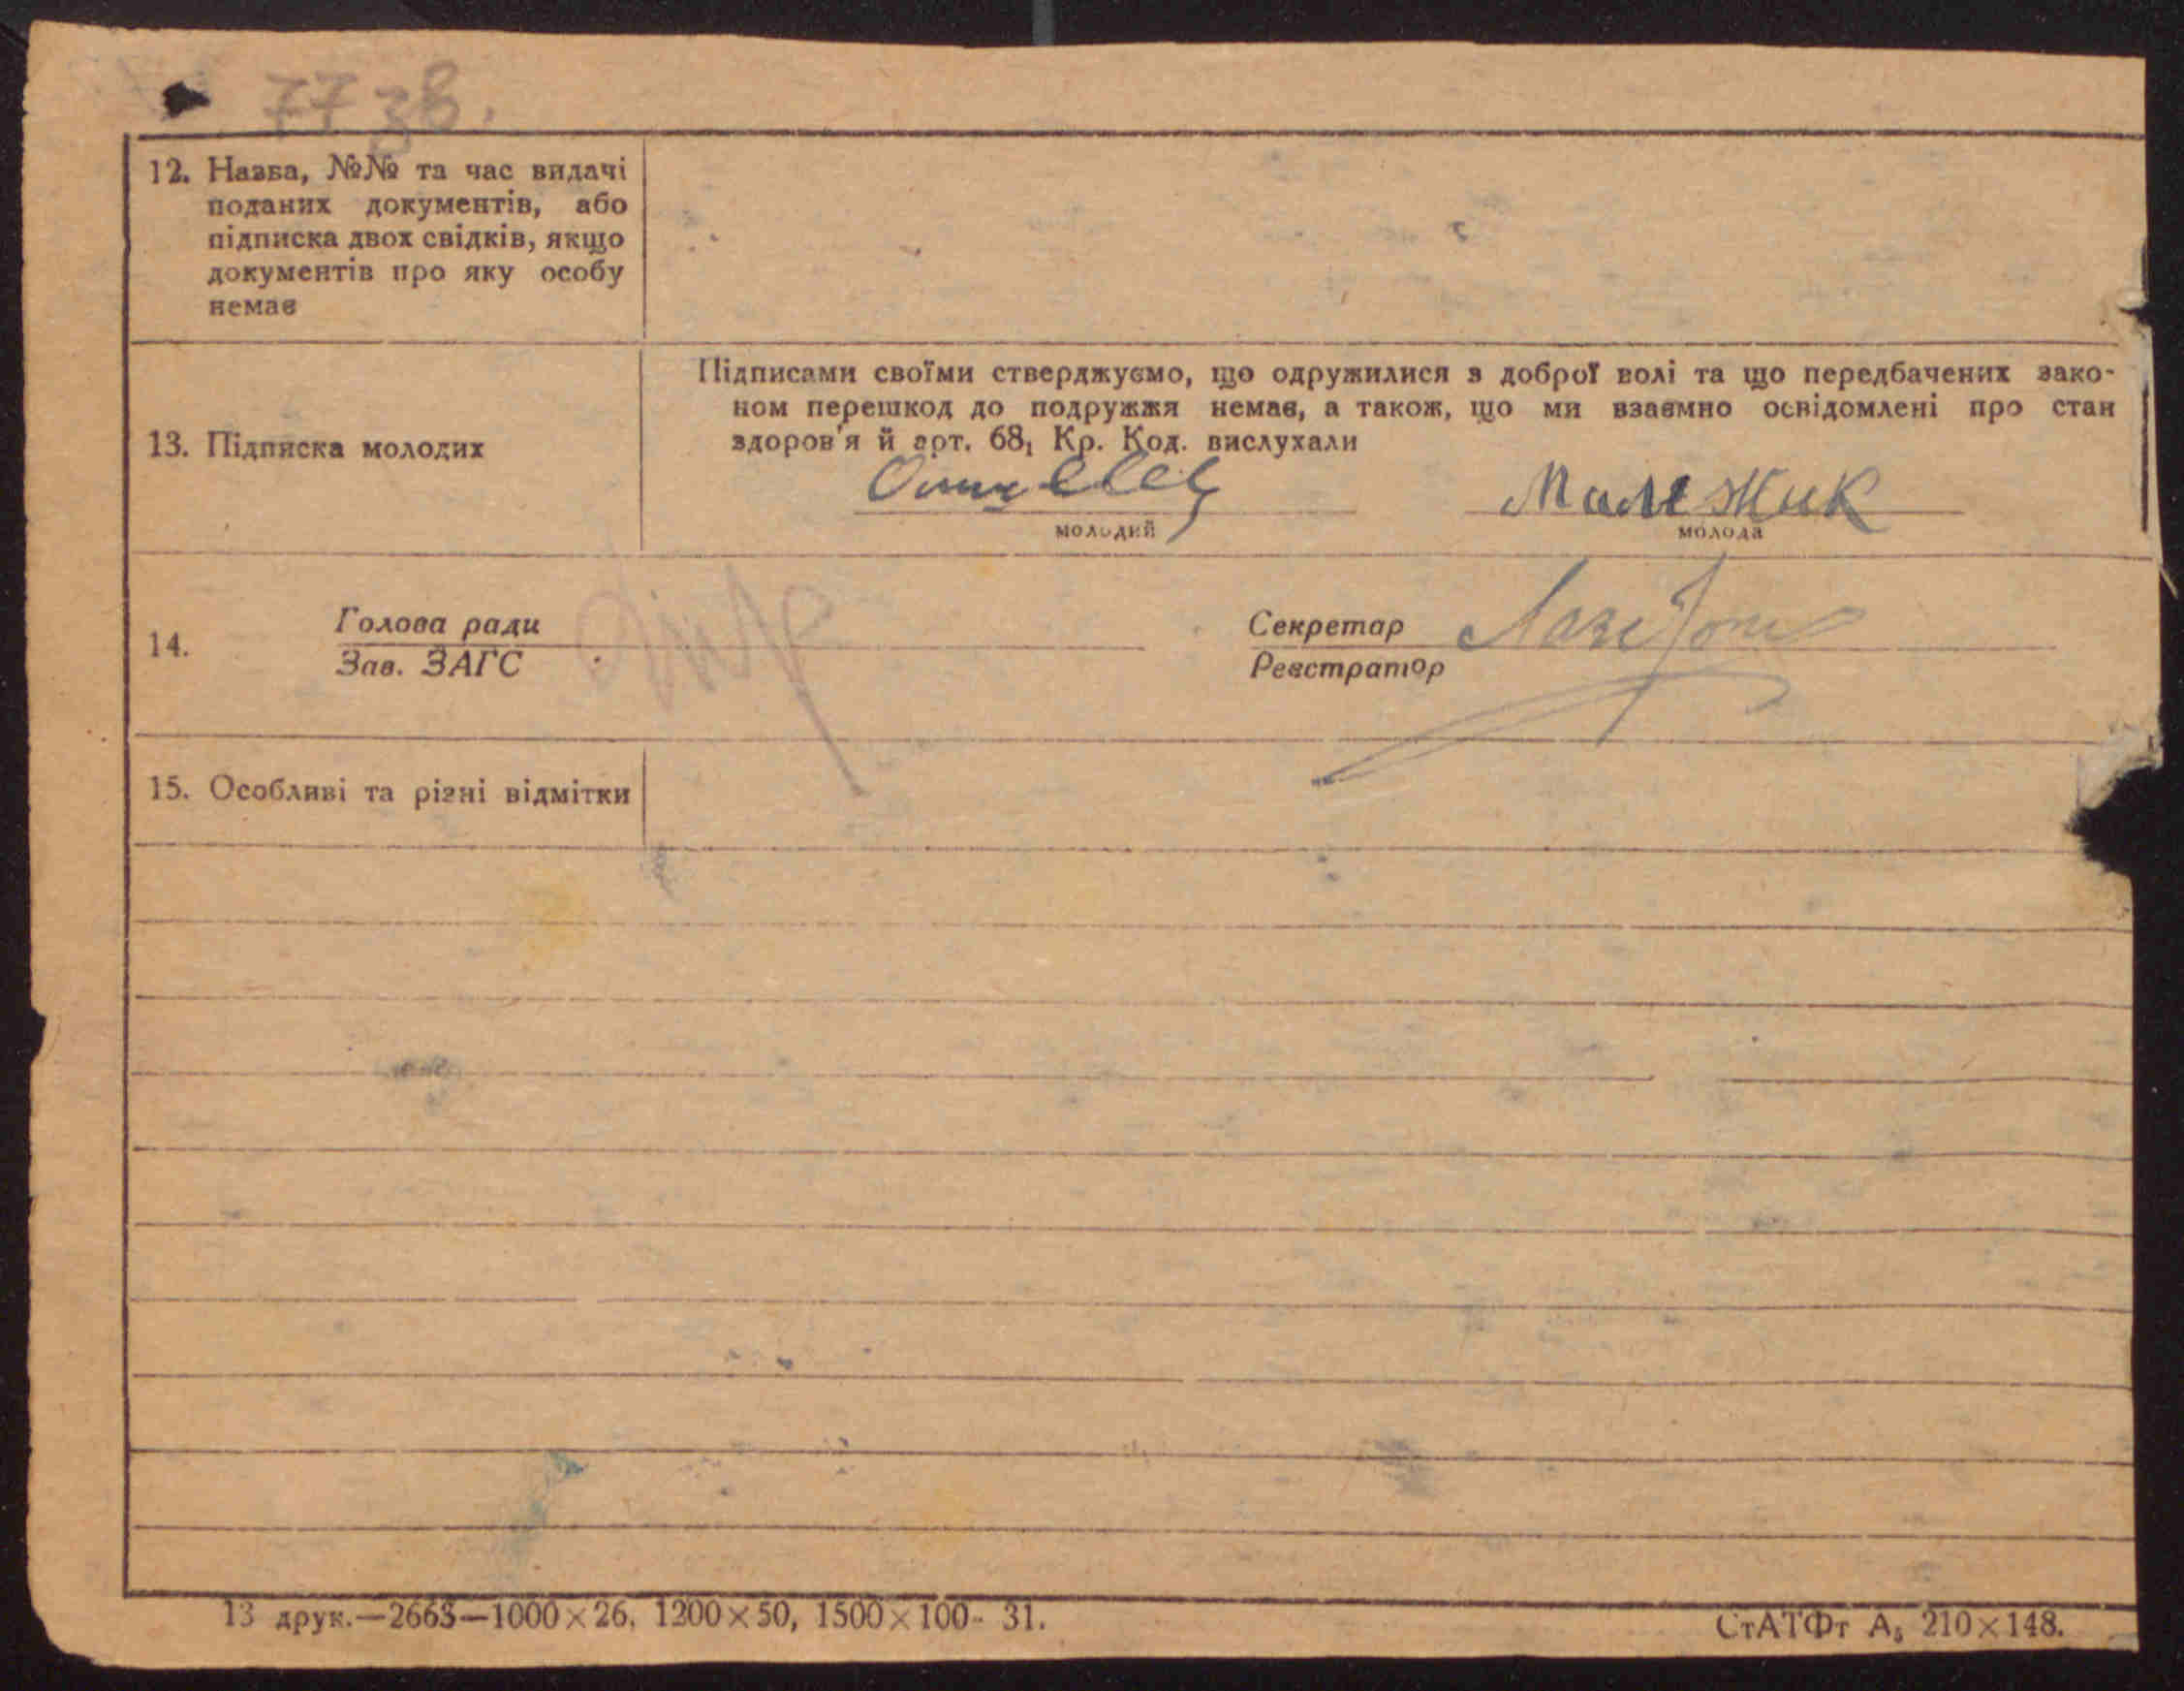 77 зв.
12. Назва, №№ та час видачі
поданих документів, або
підписка двох свідків, якщо
документів про яку особу
немає
13. Підписка молодих
Підписами своїми стверджуємо, що одружилися з доброї волі та що передбачених зако-
ном перешкод до подружжя немає, а також, що ми взаємно освідомлені про стан
здоров'я й арт. 68₁ Кр. Код. вислухали
Малежик
молодий молода
14. Голова ради Секретар
Зав. ЗАГС Реєстратор
15. Особливі та різні відмітки
13 друк.—2663—1000×26, 1200×50, 1500×100- 31. СтАТФт А₅ 210×148.